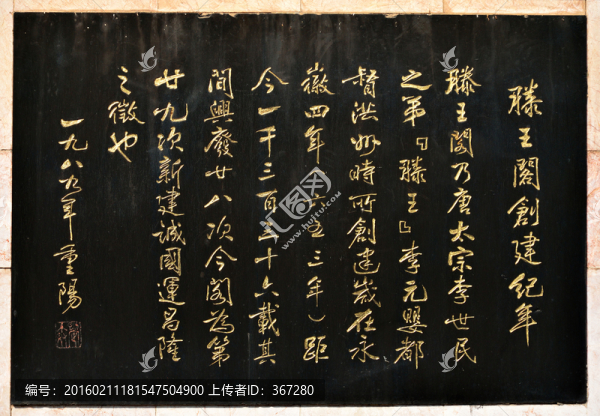 滕王閣創建紀年
滕王閣乃唐太宗李世民
之弟『滕王』李元嬰都
督洪州時所創建歲在永
徽四年（六五三年）距
今一千三百三十六載其
間興廢廿八次今閣為第
廿九次新建誠國運昌隆
之徵也
一九八九年重陽
编号：20160211181547504900 上传者ID：367280